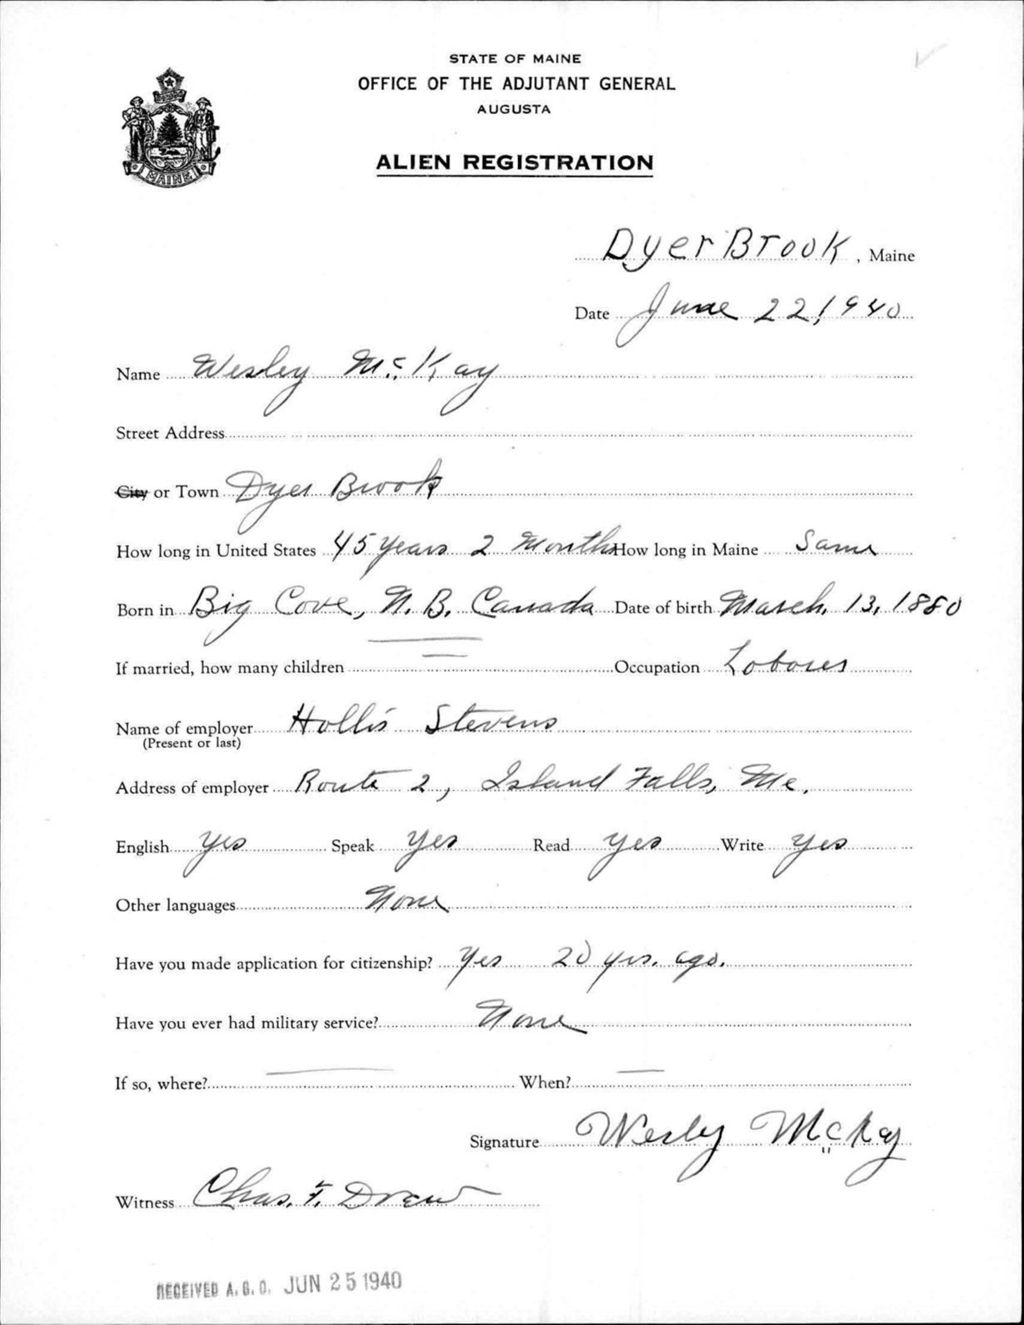 STATE OF MAINE
OFFICE OF THE ADJUTANT GENERAL
AUGUSTA
ALIEN REGISTRATION
MAINE
Dyer Brook, Maine
Date June 22, 1940
Name Wesley McKay
Street Address
City or Town Dyer Brook
How long in United States 45 years 2 Months How long in Maine Same
Born in Big Cove, N.B. Canada Date of birth March, 13, 1880
If married, how many children Occupation Laborer
Name of employer Hollis Stevens
(Present or last)
Address of employer Route 2, Island Falls, Me.
English yes Speak yes Read yes Write yes
Other languages None
Have you made application for citizenship? Yes 20 yrs. ago.
Have you ever had military service? None
If so, where? When?
Signature Wesley McKay
Witness Chas. F. Drew
RECEIVED A.G.O. JUN 25 1940